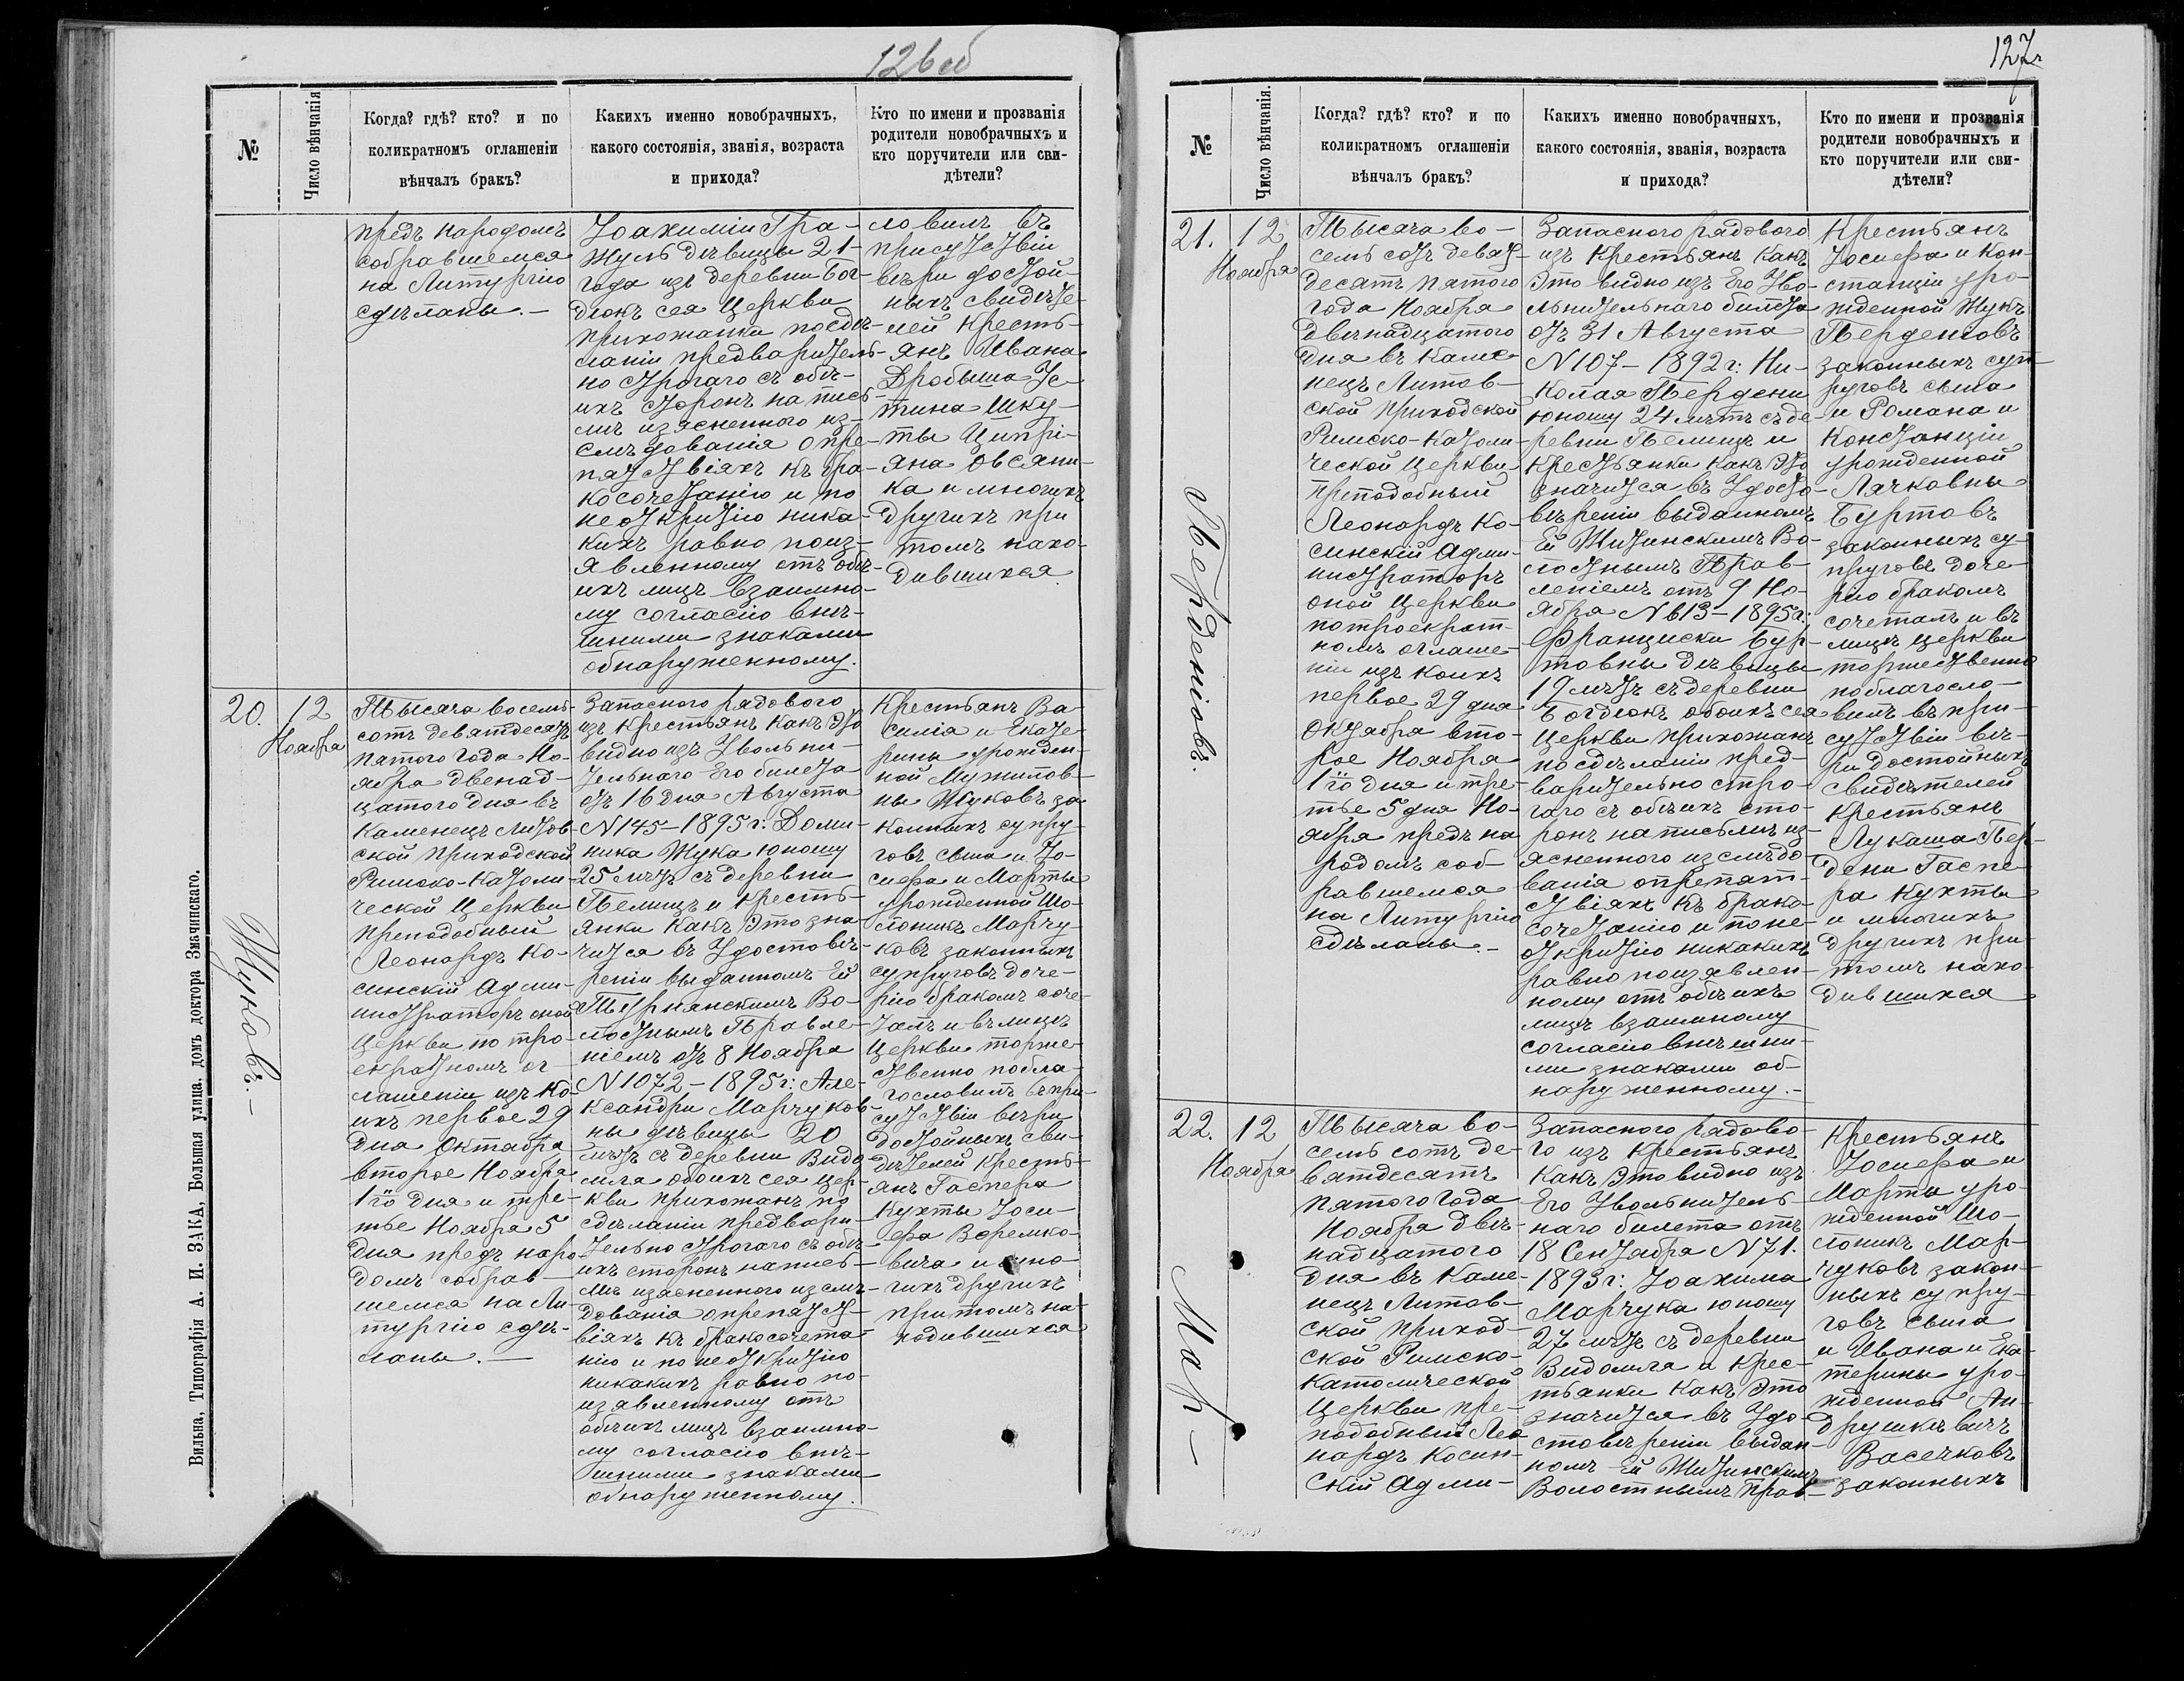 126 об
№
Число вѣнчанія
Когда? гдѣ? кто? и по
коликратномъ оглашеніи
вѣнчалъ бракъ?
Какихъ именно новобрачныхъ,
какого состоянія, званія, возраста
и прихода?
Кто по имени и прозванія
родители новобрачныхъ и
кто поручители или сви-
дѣтели?
предъ народомъ
собравшемся
на Литургію
сдѣланы.—
Іоахиміи Гра-
жуль дѣвицы 21-
года изъ деревни Бог-
дюкъ сея Церкви
прихожанка по сдѣ-
ланіи предваритель-
но строгаго съ обѣ-
ихъ сторонъ на пись-
мѣ изясненного из-
слѣдованія о пре-
пятствіяхъ къ бра-
косочетанію и по
неоткрытію ника-
кихъ равно по из-
явленному отъ обѣ-
ихъ лицъ взаимно-
му согласію внѣ-
шними знаками
обнаруженному.
ловилъ въ
присутствіи
вѣры достой-
ныхъ свидѣте-
лей Кресть-
янъ Ивана
Дробыша Ус-
тина Шку-
ты Ципрі-
яна Овсяни-
ка и многихъ
другихъ при
томъ нахо-
дившихся
20.
12
Ноября
Жуковъ.—
Тысяча восемь-
сотъ девятдесятъ
пятого года Но-
ября двенад-
цатого дня въ
Каменецъ Литов-
ской приходской
Римско-Католи-
ческой Церкви
Преподобный
Леонардъ Ко-
синскій Адми-
нистраторъ оной
Церкви по тро-
екратномъ ог-
лашеніи изъ ко-
ихъ первое 29
дня Октября
второе Ноября
1го дня и тре-
тье Ноября 5
дня предъ наро-
домъ собрав-
шемся на Ли-
тургію сдѣ-
ланы.—
Запасного рядового
изъ Крестьянъ какъ Это
видно изъ Увольни-
тельнаго Его билета
отъ 16 дня Августа
N 145-1895 г: Доми-
ника Жука юношу
25 лѣтъ съ деревни
Пелищъ и Кресть-
янки Какъ Это зна-
чится въ Удостовѣ-
реніи выданномъ Ей
Турнянскимъ Во-
лостнымъ Правле-
ніемъ отъ 8 Ноября
N 1072-1895 г: Але-
ксандры Марчуков-
ны дѣвицы 20
лѣтъ съ деревни Видо-
мля обоихъ сея цер-
кви прихожанъ по
сдѣланіи предвари-
тельно строгаго съ обѣ-
ихъ сторонъ на пись-
мѣ изясненного изслѣ-
дованія о препятст-
віяхъ къ бракосочета-
нію и по неоткрытію
никакихъ равно по-
изявленному отъ
обѣихъ лицъ взаимно-
му согласію внѣ-
шними знаками
обнаруженному.
Крестьянъ Ва-
силія и Екате-
рины урожден-
ной Мужилов-
ны Жуковъ за-
конныхъ супру-
говъ сына и Іо-
сифа и Марты
урожденной Шо-
лоникъ Марчу-
ковъ законныхъ
супруговъ доче-
рію бракомъ соче-
талъ и въ лицѣ
Церкви торже-
ственно побла-
гословилъ въ при-
сутствіи вѣры
достойныхъ сви-
дѣтелей Кресть-
янъ Гаспера
Кухты Іоси-
фа Веремко-
вича и мно-
гихъ другихъ
при томъ на-
ходившихся
Вильна, Типографія А. И. ЗАКА, Большая улица, домъ доктора Змачинскаго.
127
№
Число вѣнчанія.
Когда? гдѣ? кто? и по
коликратномъ оглашеніи
вѣнчалъ бракъ?
Какихъ именно новобрачныхъ,
какого состоянія, званія, возраста
и прихода?
Кто по имени и прозванія
родители новобрачныхъ и
кто поручители или сви-
дѣтели?
21.
12
Ноября
Перденіовъ.
Тысяча во-
семьсотъ девят-
десятъ пятого
года Ноября
двѣнадцатого
дня въ Каме-
нецъ Литов-
ской приходской
Римско-Католи-
ческой Церкви
Преподобный
Леонардъ Ко-
синскій Адми-
нистраторъ
оной Церкви
по троекрат-
номъ оглаше-
ніи изъ коихъ
первое 29 дня
Октября вто-
рое Ноября
1го дня и тре-
тье 5 дня Но-
ября предъ на
родомъ соб-
равшемся
на Литургію
сдѣланы.—
Запасного рядового
изъ Крестьянъ какъ
Это видно изъ Его Уво-
льнительнаго билета
отъ 31 Августа
N 107-1892 г: Ни-
колая Пердени
юношу 24 лѣтъ съ де-
ревни Пелищъ и
Крестьянки какъ Это
значится въ Удосто-
вѣреніи выданномъ
Ей Житинскимъ Во-
лостнымъ Прав-
леніемъ отъ 9 Но-
ября N 613-1895 г:
Франциски Бур-
товны дѣвицы
19 лѣтъ съ деревни
Богдюкъ обоихъ сея
Церкви прихожанъ
по сдѣланіи пред-
варительно стро-
гаго съ обѣихъ сто-
ронъ на письмѣ из-
ясненного изслѣдо-
ванія о препят-
ствіяхъ къ брако-
сочетанію и по не-
открытію никакихъ
равно по изявлен-
ному отъ обѣихъ
лицъ взаимному
согласію внѣшни-
ми знаками об-
наруженному.—
Крестьянъ
Іосифа и Кон-
станціи уро-
жденной Жукъ
Перденіовъ
законныхъ суп-
руговъ сына
и Романа и
Констанціи
урожденной
Лячковны
Буртовъ
законныхъ су-
пруговъ доче-
рію бракомъ
сочеталъ и въ
лицѣ Церкви
торжественно
поблагосло-
вилъ въ при-
сутствіи вѣ-
ры достойныхъ
свидѣтелей
Крестьянъ
Лукаша Пер-
дени Гаспе-
ра Кухты
и многихъ
другихъ при-
томъ нахо-
дившихся
22.
12
Ноября
Мар-
Тысяча во-
семьсотъ де-
вятдесятъ
пятого года
Ноября двѣ-
надцатого
дня въ Каме-
нецъ Литов-
ской приход-
ской Римско-
Католической
Церкви пре-
подобный Лео-
нардъ Косин-
скій Адми-
Запасного рядово-
го изъ Крестьянъ
какъ Это видно изъ
Его Увольнитель
наго билета отъ
18 Сентября N 71.
1893 г: Іоахима
Марчука юношу
27 лѣтъ съ деревни
Видомля и Крес-
тьянки какъ Это
значится въ Удо-
стовѣреніи выдан-
номъ Ей Житинскимъ
Волостнымъ Прав-
Крестьянъ
Іосифа и
Марты уро-
жденной Шо-
лоникъ Мар-
чуковъ закон-
ныхъ супру-
говъ сына
и Ивана и Ека-
терины уро-
жденной Ан-
друшкѣвичъ
Васечковъ
законныхъ